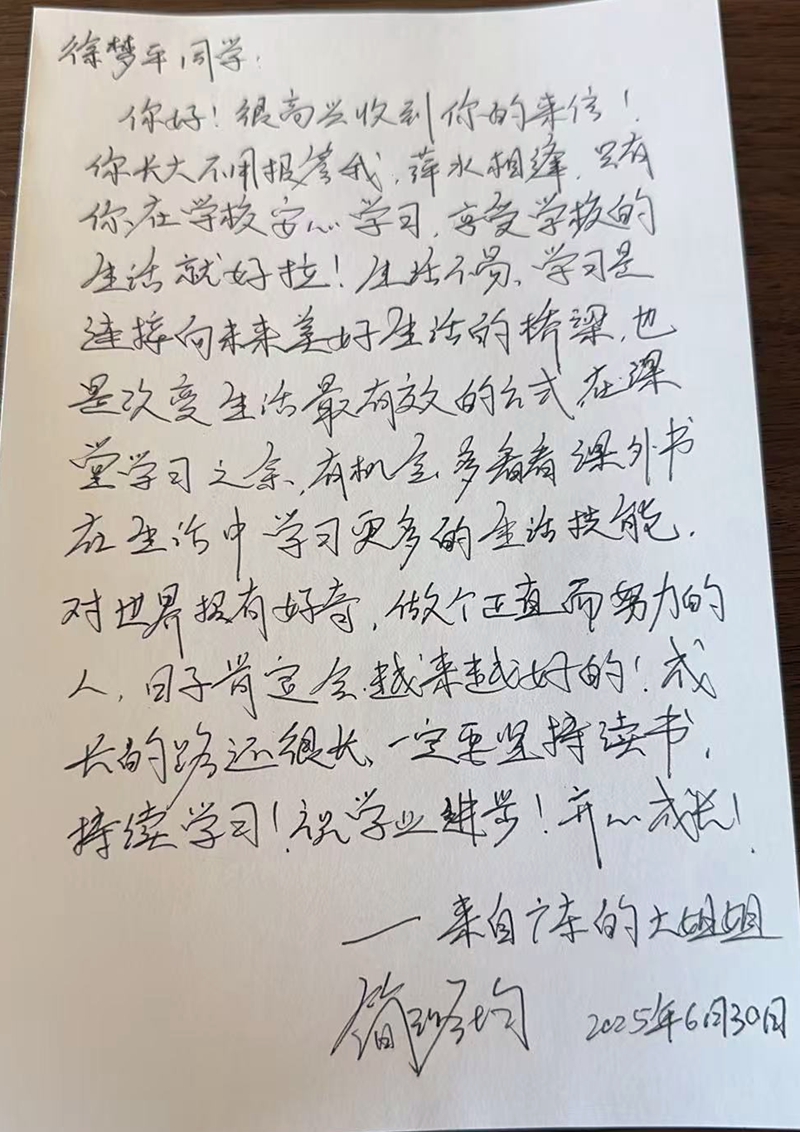 徐梦平同学:
你好!很高兴收到你的来信!
你长大不用报答我,萍水相逢,只有
你在学校安心学习,享受学校的
生活就好拉!生活不易、学习是
连接向未来美好生活的桥梁,也
是改变生活最有效的方式,在课
堂学习之余,有机会多看看课外书
在生活中学习更多的生活技能.
对世界拥有好奇,做个正直而努力的
人,日子肯定会越来越好的!成
长的路还很长、一定要坚持读书,
持续学习!祝学业进步!开心成长!
——来自广东的大姐姐
简 均 2025年6月30日